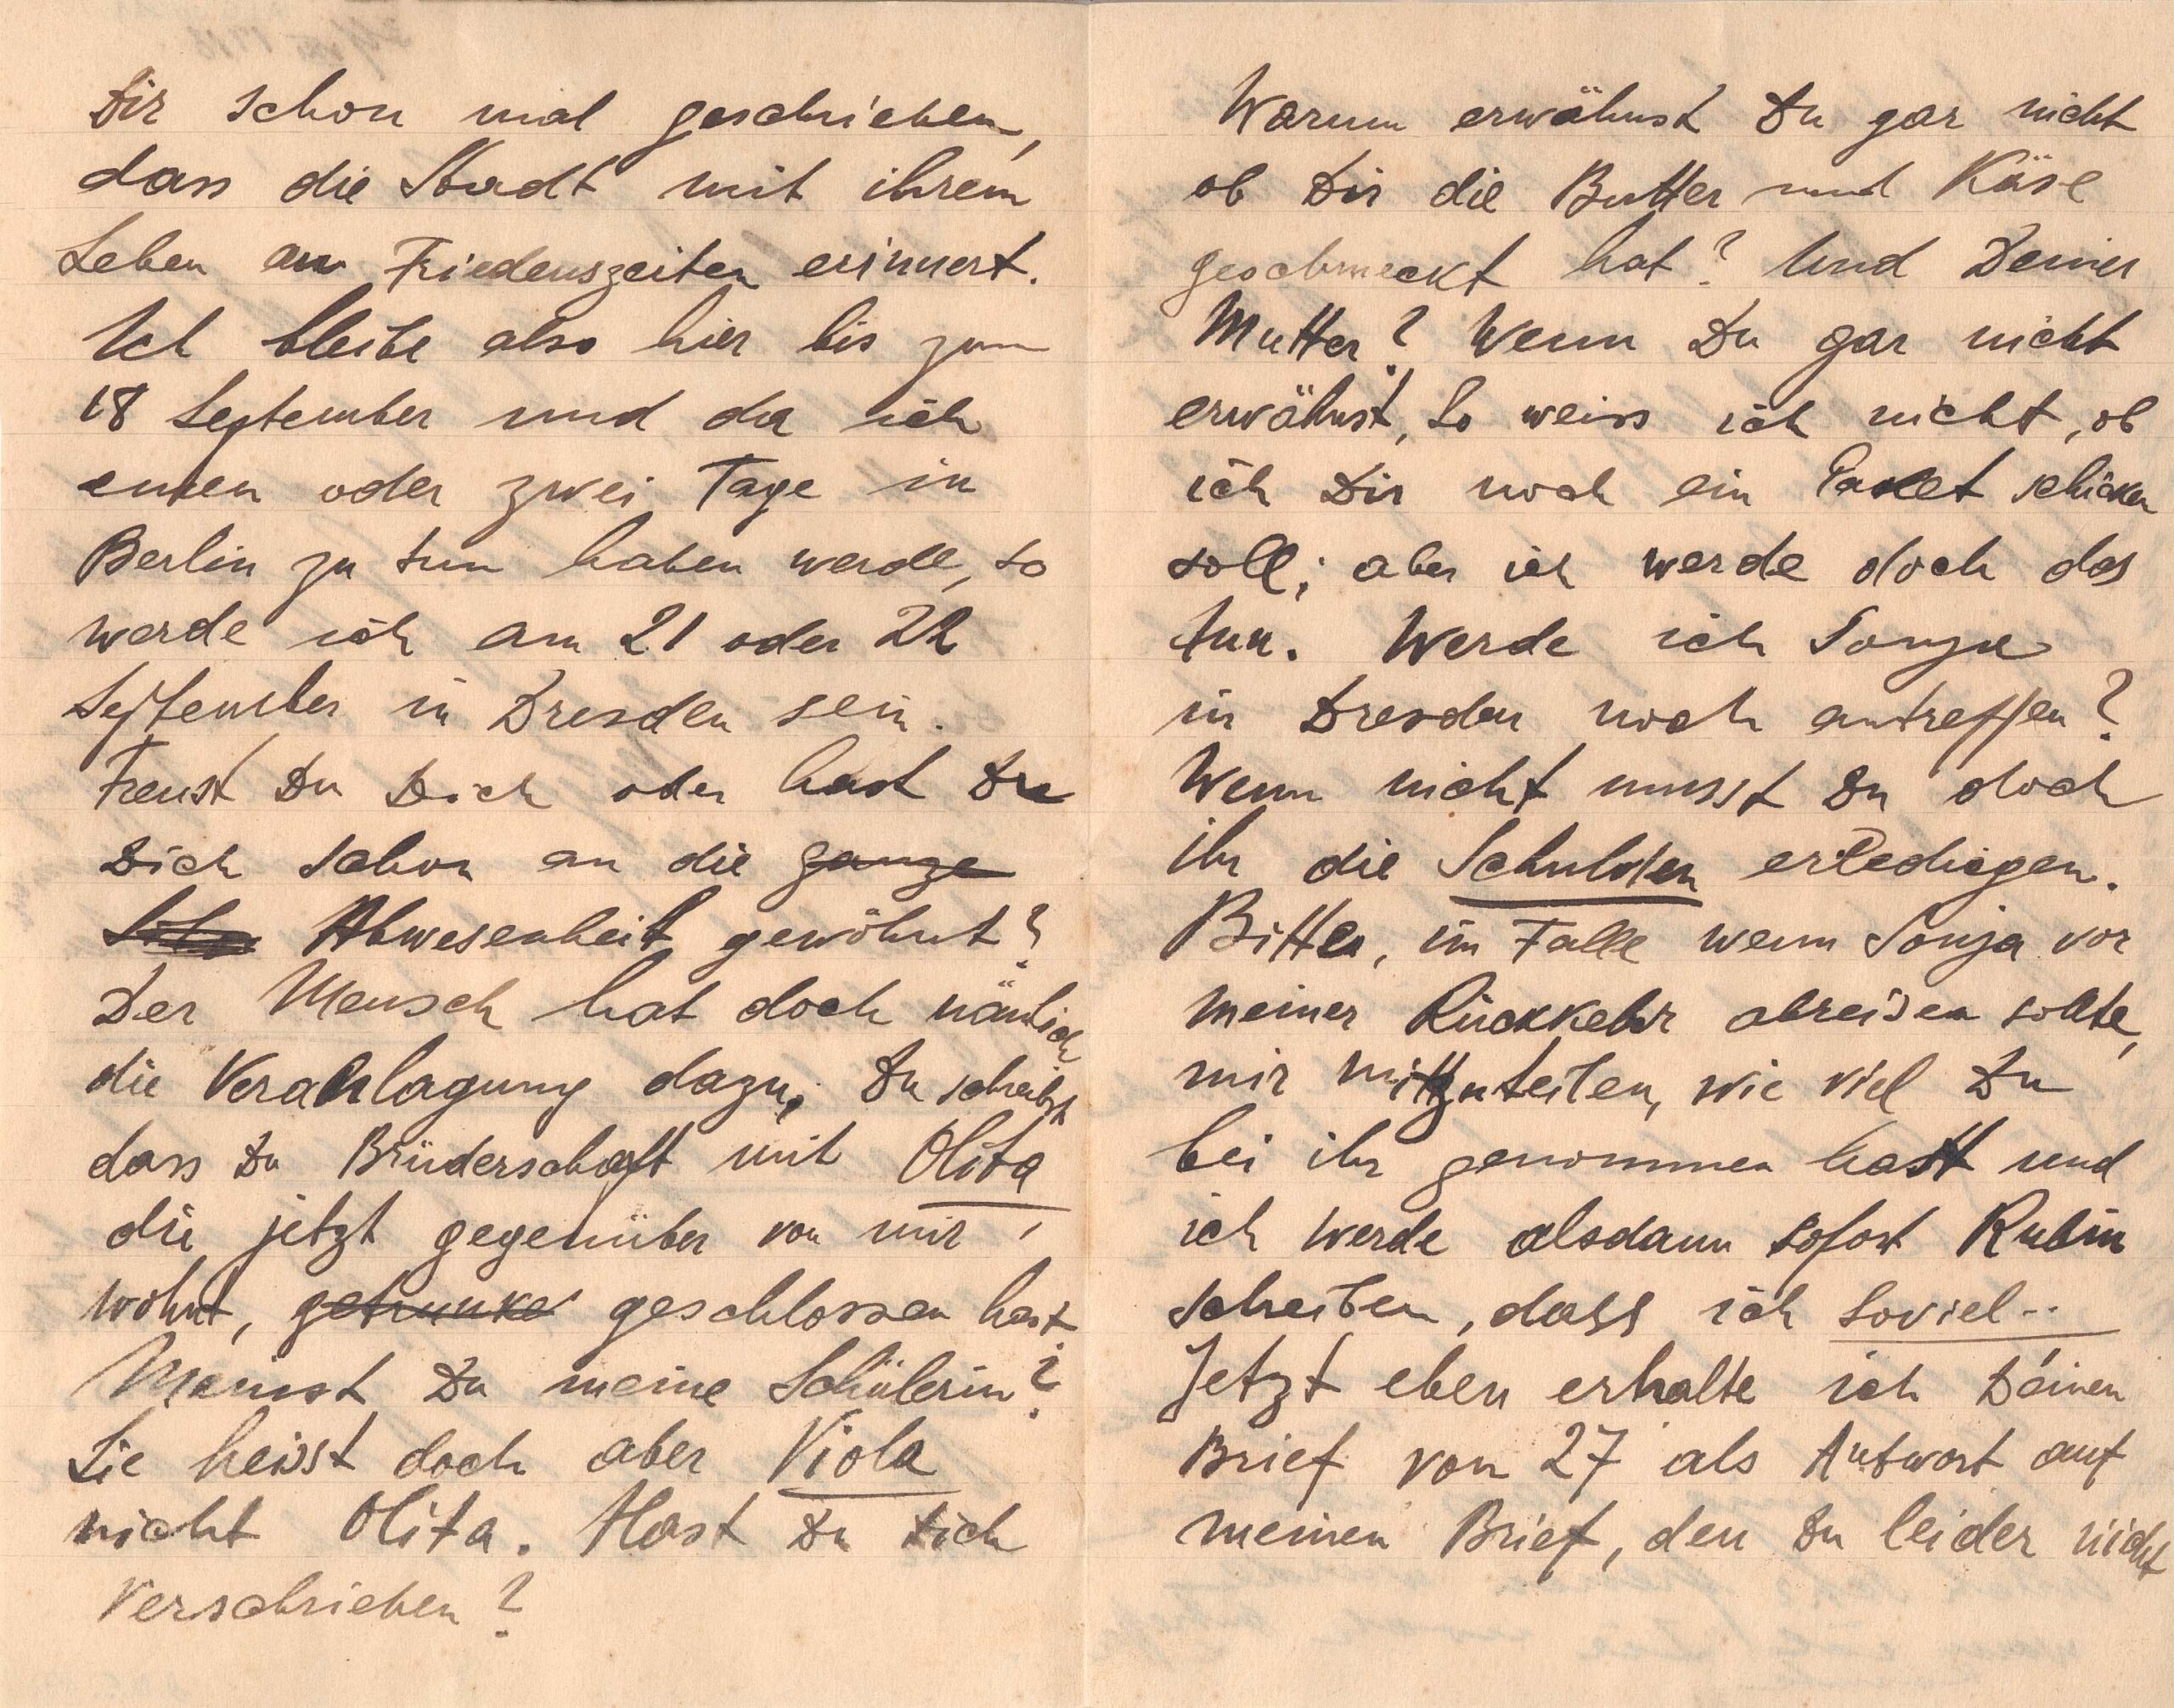 Dir schon mal geschrieben,
dass die Stadt mit ihrem
Leben an Friedenszeiten erinnert.
Ich bleibe also hier bis zum
18 September und da ich
einen oder zwei Tage in
Berlin zu tun haben werde, so
werde ich am 21 oder 22
September in Dresden sein.
Freust Du Dich oder hast Du
Dich schon an die ganze
Abwesenheit gewöhnt?
Der Mensch hat doch nämlich
die Veranlagung dazu. Du schreibst
dass Du Brüderschaft mit Olita,
die jetzt gegenüber von mir
wohnt, getrunke geschlossen hast.
Meinst Du meine Schülerin?
Sie heisst doch aber Viola
nicht Olita. Hast Du Dich
verschrieben?
Warum erwähnst Du gar nicht
ob Dir die Butter und Käse
geschmeckt hat? Und Deiner
Mutter? Wenn Du gar nicht
erwähnst, so weiss ich nicht, ob
ich Dir noch ein Paket schicken
soll; aber ich werde doch das
tun. Werde ich Sonja
in Dresden noch antreffen?
Wenn nicht musst Du doch
ihr die Schulden erledigen.
Bitte, im Falle wenn Sonja vor
meiner Rückkehr abreisen sollte,
mir mitzuteilen, wie viel Du
bei ihr genommen hast und
ich werde alsdann sofort Rubin
schreiben, dass ich soviel..
Jetzt eben erhalte ich Deinen
Brief von 27 als Antwort auf
meinen Brief, den Du leider nicht